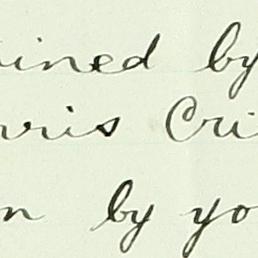 ined by
rris Cri
n by yo